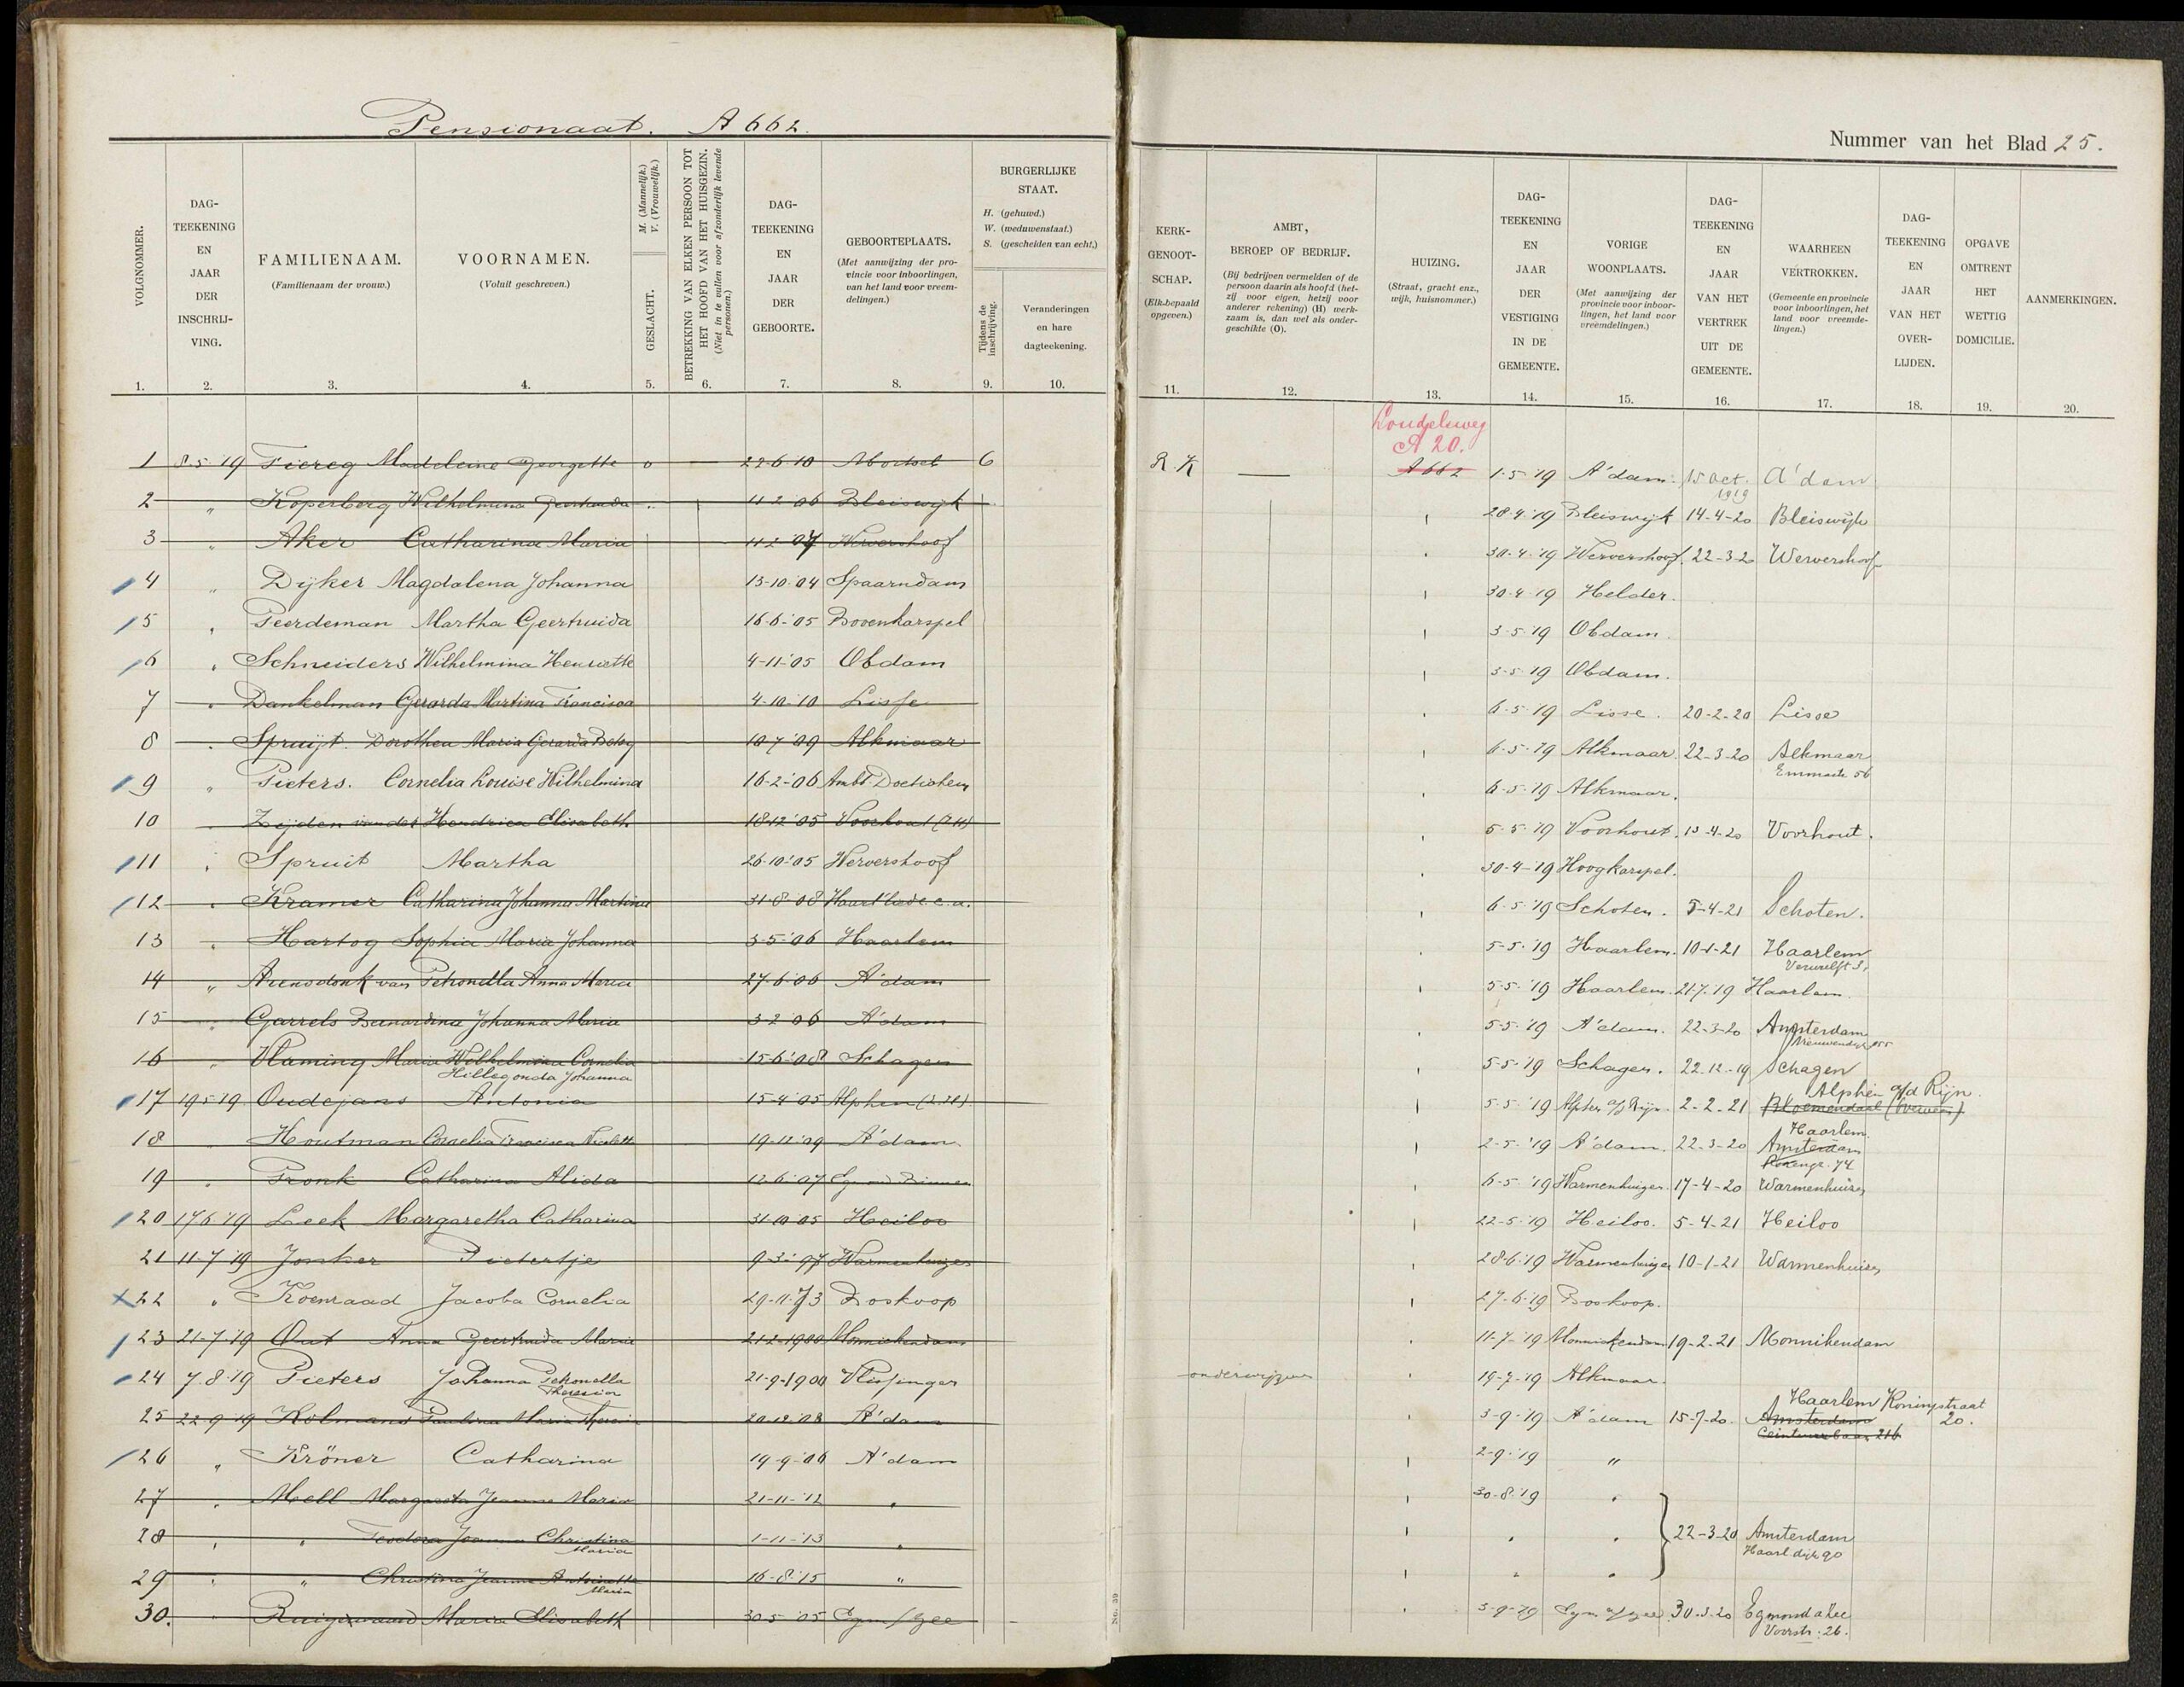 Pensionaat. A 662.
Nummer van het Blad 25.
VOLGNOMMER. 1.
DAG-TEEKENING EN JAAR DER INSCHRIJ-VING. 2.
FAMILIENAAM. (Familienaam der vrouw.) 3.
VOORNAMEN. (Voluit geschreven.) 4.
M. (Mannelijk.) V. (Vrouwelijk.) GESLACHT. 5.
BETREKKING VAN ELKEN PERSOON TOT HET HOOFD VAN HET HUISGEZIN. (Niet in te vullen voor afzonderlijk levende personen.) 6.
DAG-TEEKENING EN JAAR DER GEBOORTE. 7.
GEBOORTEPLAATS. (Met aanwijzing der provincie voor inboorlingen, van het land voor vreemdelingen.) 8.
BURGERLIJKE STAAT. H. (gehuwd.) W. (weduwenstaat.) S. (gescheiden van echt.)
Tijdens de inschrijving. 9.
Veranderingen en hare dagteekening. 10.
KERK-GENOOT-SCHAP. (Elk bepaald opgeven.) 11.
AMBT, BEROEP OF BEDRIJF. (Bij bedrijven vermelden of de persoon daarin als hoofd (hetzij voor eigen, hetzij voor anderer rekening) (H) werkzaam is, dan wel als ondergeschikte (O). 12.
HUIZING. (Straat, gracht enz., wijk, huisnommer.) 13.
DAG-TEEKENING EN JAAR DER VESTIGING IN DE GEMEENTE. 14.
VORIGE WOONPLAATS. (Met aanwijzing der provincie voor inboorlingen, het land voor vreemdelingen.) 15.
DAG-TEEKENING EN JAAR VAN HET VERTREK UIT DE GEMEENTE. 16.
WAARHEEN VERTROKKEN. (Gemeente en provincie voor inboorlingen, het land voor vreemdelingen.) 17.
DAG-TEEKENING EN JAAR VAN HET OVER-LIJDEN. 18.
OPGAVE OMTRENT HET WETTIG DOMICILIE. 19.
AANMERKINGEN. 20.
A 20.
1 8-5-'19 Madeleine Georgette 22-6-10 R.K. — A 662 1-5-'19 A'dam. 15 Oct. 1919 A'dam
2 " Koperberg Wilhelmina Geertruida 11-2-'06 Bleiswijk 28-4-'19 Bleiswijk 14-4-20 Bleiswijk
3 " Aker Catharina Maria 11-2-'07 Wervershoof 30-4-'19 Wervershoof. 22-3-20 Wervershoof
4 " Dijker Magdalena Johanna 13-10-'04 Spaarndam 30-4-19 Helder.
5 " Peerdeman Martha Geertruida 16-6-'05 Bovenkarspel 3-5-'19 Obdam.
6 " Schneiders Wilhelmina Henriette 4-11-'05 Obdam 3-5-'19 Obdam.
7 " Dankelman Gerarda Martina Francisca 4-10-'10 Lisse 6-5-19 Lisse. 20-2-20 Lisse
8 " Spruijt. Dorothea Maria Gerarda 10-7-'09 Alkmaar 6-5-'19 Alkmaar 22-3-20 Alkmaar
Emmastr 56
9 " Pieters. Cornelia Louise Wilhelmina 16-2-'06 Ambt-Doetichem 6-5-'19 Alkmaar.
10 " Zijden van der Hendrica Elisabeth 18-12-'05 Voorhout (Z.H) 5-5-'19 Voorhout. 13-4-20 Voorhout.
11 " Spruit Martha 26-10-'05 Wervershoof 30-4-'19 Hoogkarspel.
12 " Kramer Catharina Johanna Martina 31-8-'08 Haarl'liede c.a. 6-5-'19 Schoten. 5-4-21 Schoten.
13 " Hartog Sophia Maria Johanna 3-5-'06 Haarlem 5-5-'19 Haarlem. 10-1-21 Haarlem
14 " van Petronella Anna Maria 27-6-06 A'dam 5-5-'19 Haarlem. 21-7-19 Haarlem.
15 " Garrels Bernardina Johanna Maria 3-2-06 A'dam 5-5-'19 A'dam. 22-3-20 Amsterdam
16 " Vlaming Maria Wilhelmina Cornelia
Hillegonda Johanna 15-6-'08 Schagen 5-5-'19 Schagen. 22-12-19 Schagen
17 19-5-19 Oudejans Antonia 15-4-'05 Alphen (Z.H.) 5-5-'19 Alphen a/d Rijn. 2-2-21 Bloemendaal (Overveen) Alphen a/d Rijn.
18 Houtman Cornelia Francisca 19-12-'09 A'dam 2-5-'19 A'dam. 22-3-20 Amsterdam Haarlem
19 " Pronk Catharina Alida 12-6-'07 Egmond Binnen 6-5-'19 Warmenhuizen 17-4-20 Warmenhuizen
20 17-6-19 Leek Margaretha Catharina 31-10-05 Heiloo 22-5-'19 Heiloo. 5-4-21 Heiloo
21 11-7-'19 Jonker Pietertje 9-3-'97 Warmenhuizen 28-6-'19 Warmenhuizen 10-1-21 Warmenhuizen
22 " Koenraad Jacoba Cornelia 29-11-73 Boskoop 27-6-'19 Boskoop.
23 21-7-'19 Out Anna Geertruida Maria 21-2-1900 Monnickendam 11-7-'19 Monnickendam 19-2-21 Monnikendam
24 7-8-'19 Pieters Johanna Petronella
Theresia 21-9-1900 Vlissingen onderwijzeres 19-7-19 Alkmaar.
25 22-9-'19 Kolmans Paulina Maria 20-12-'08 A'dam 3-9-'19 A'dam 15-7-20. Amsterdam Haarlem Koningstraat 20.
Ceintuurbaan 216
26 " Kröner Catharina 19-9-'06 A'dam 2-9-'19 "
27 " Mell Margareta Jeanne Maria 21-11-'12 " 30-8-'19 "
28 " " Teodora Joanna Christina
Maria 1-11-'13 " " " 22-3-20 Amsterdam
Haarl dijk 90
29 " " Christina Jeanne Antoinette
Maria 16-8-'15 " " "
30. " Maria Elisabeth 30-5-'05 Egm/zee 3-9-'19 Egm a/zee 30-3-20 Egmond a Zee
Voorstr: 26.
No. 39